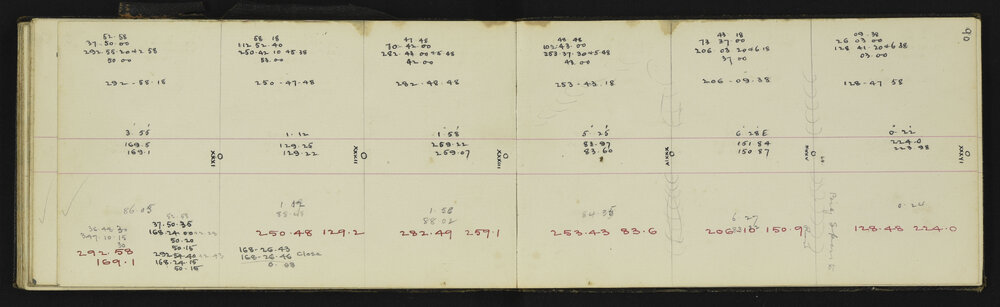 52.58
37.50.00
292.55.20 + 2.58
50 00
292-58.18
3.55
169.5
169.1
XXXI
86.05
36.48 30
347.10.15
30
292.58
169.1
37.50.35
168.24.00
50.20
50.15
168.24.15
50.15
58 18
112 52.40
53.00
250-47.48
1.12
129.25
129.22
XXXII
250.48 129.2
168-26.43
168-26-46 Close
0.03
47.48
70-42.00
282.43 00 + 5.48
42 00
282.48.48
1.58
259.22
259.07
XXXIII
1.58
88.02
282.49 259.1
48.48
102.43.00
253 37.30 + 5.48
43.00
253-43.18
5.25
83.97
83.60
XXXIV
84.35
253.43 83.6
43 18
73 37 00
206 03 20 + 6 18
37 00
206-09.38
6.28E
151.84
150 87
XXXV
6.27
206.10 150.9
09.38
26 03 00
128 41 20 + 6 38
03.00
128-47 58
0.22
224.0
223.98
XXXVI
0.24
128.48 224.0
90